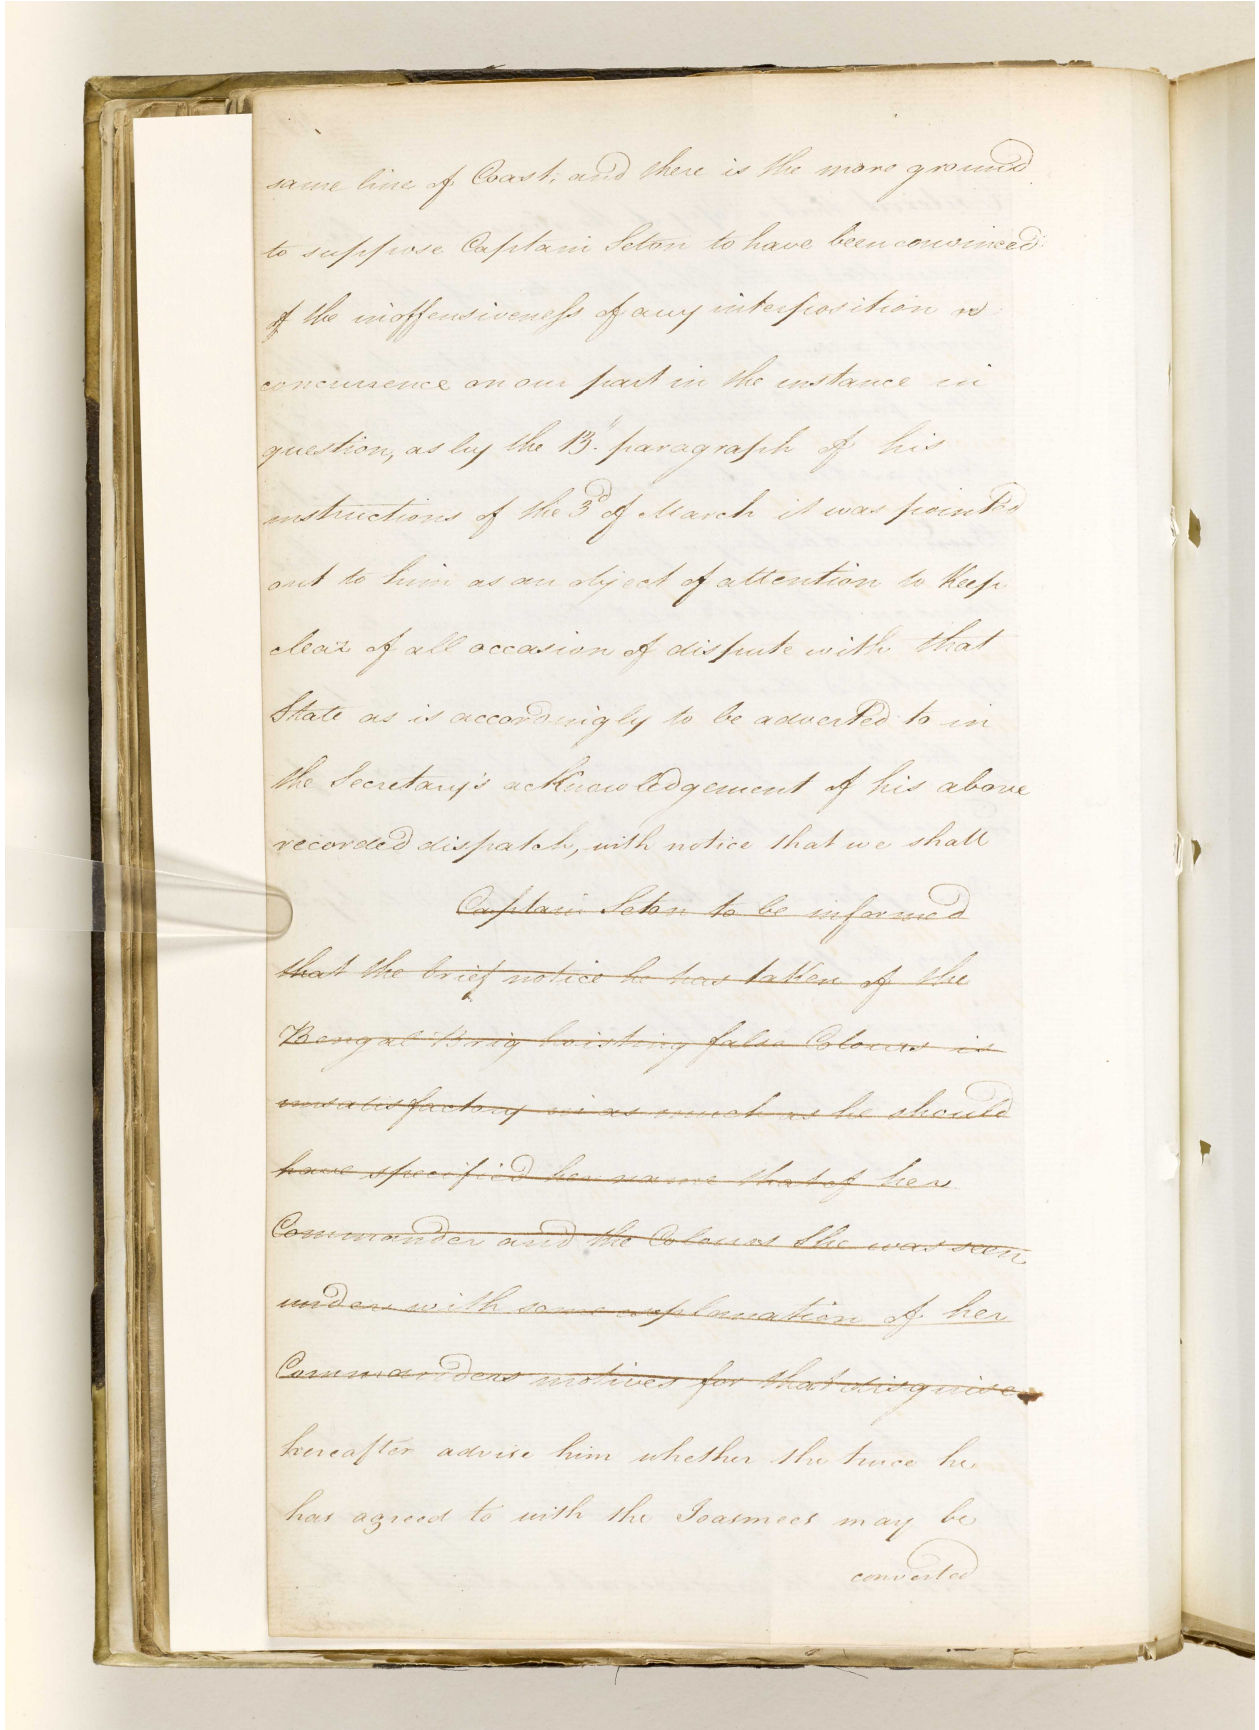 same line of Coast; and there is the more ground
to suppose Captain Seton to have been convinced
of the inoffensiveness of any interposition or
concurrence on our part in the instance in
question, as by the 13th. paragraph of his
instructions of the 3d of March it was pointed
out to him as an object of attention to keep
clear of all occasion of dispute with that
State as is accordingly to be adverted to in
the Secretary's acknowledgement of his above
recorded dispatch, with notice that we shall
Captain Seton to be informed
that the brief notice he has taken of the
Bengal Brig hoisting false Colours is
unsatisfactory in as much as he should
have specified her name that of her
Commander and the Colours She was seen
under with some explanation of her
Commanders motives for that disguise
hereafter advise him whether the truce he
has agreed to with the Joasmees may be
converted